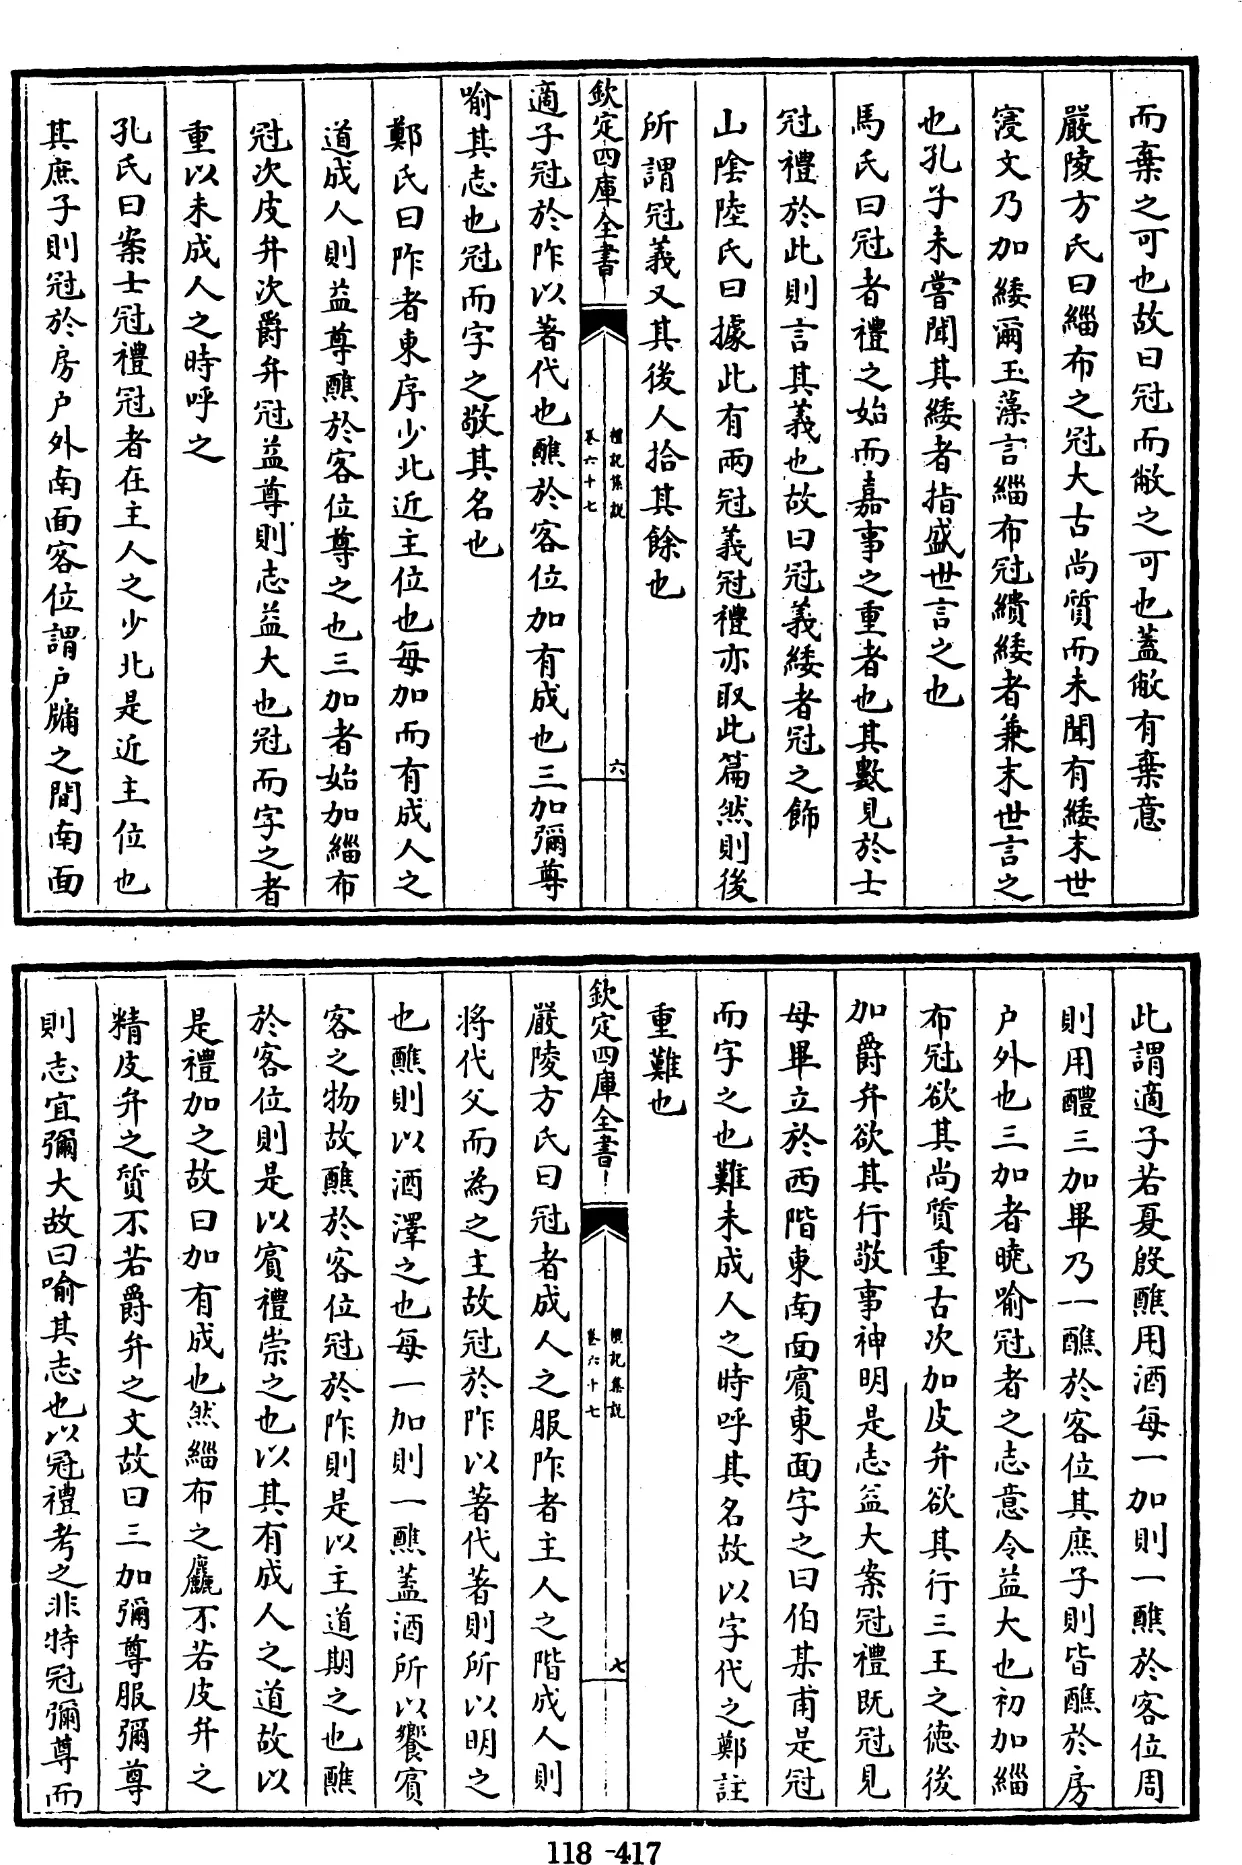 而棄之可也故曰冠而敝之可也蓋敝有棄意
嚴陵方氏曰緇布之冠大古尚質而未聞有緌末世
寖文乃加緌爾玉藻言緇布冠繢緌者兼末世言之
也孔子未嘗聞其緌者指盛世言之也
馬氏曰冠者禮之始而嘉事之重者也其數見於士
冠禮於此則言其義也故曰冠義緌者冠之飾
山陰陸氏曰據此有兩冠義冠禮亦取此篇然則後
所謂冠義又其後人拾其餘也
欽定四庫全書
禮記集說
卷六十七
六
適子冠於阼以著代也醮於客位加有成也三加彌尊
喻其志也冠而字之敬其名也
鄭氏曰阼者東序少北近主位也每加而有成人之
道成人則益尊醮於客位尊之也三加者始加緇布
冠次皮弁次爵弁冠益尊則志益大也冠而字之者
重以未成人之時呼之
孔氏曰案士冠禮冠者在主人之少北是近主位也
其庶子則冠於房户外南面客位謂户牖之間南面
此謂適子若夏殷醮用酒每一加則一醮於客位周
則用醴三加畢乃一醮於客位其庶子則皆醮於房
户外也三加者曉喻冠者之志意令益大也初加緇
布冠欲其尚質重古次加皮弁欲其行三王之德後
加爵弁欲其行敬事神明是志益大案冠禮既冠見
母畢立於西階東南面賓東面字之曰伯某甫是冠
而字之也難未成人之時呼其名故以字代之鄭註
重難也
欽定四庫全書
禮記集說
卷六十七
七
嚴陵方氏曰冠者成人之服阼者主人之階成人則
將代父而為之主故冠於阼以著代著則所以明之
也醮則以酒澤之也每一加則一醮蓋酒所以饗賓
客之物故醮於客位冠於阼則是以主道期之也醮
於客位則是以賓禮崇之也以其有成人之道故以
是禮加之故曰加有成也然緇布之麤不若皮弁之
精皮弁之質不若爵弁之文故曰三加彌尊服彌尊
則志宜彌大故曰喻其志也以冠禮考之非特冠彌尊而
118-417